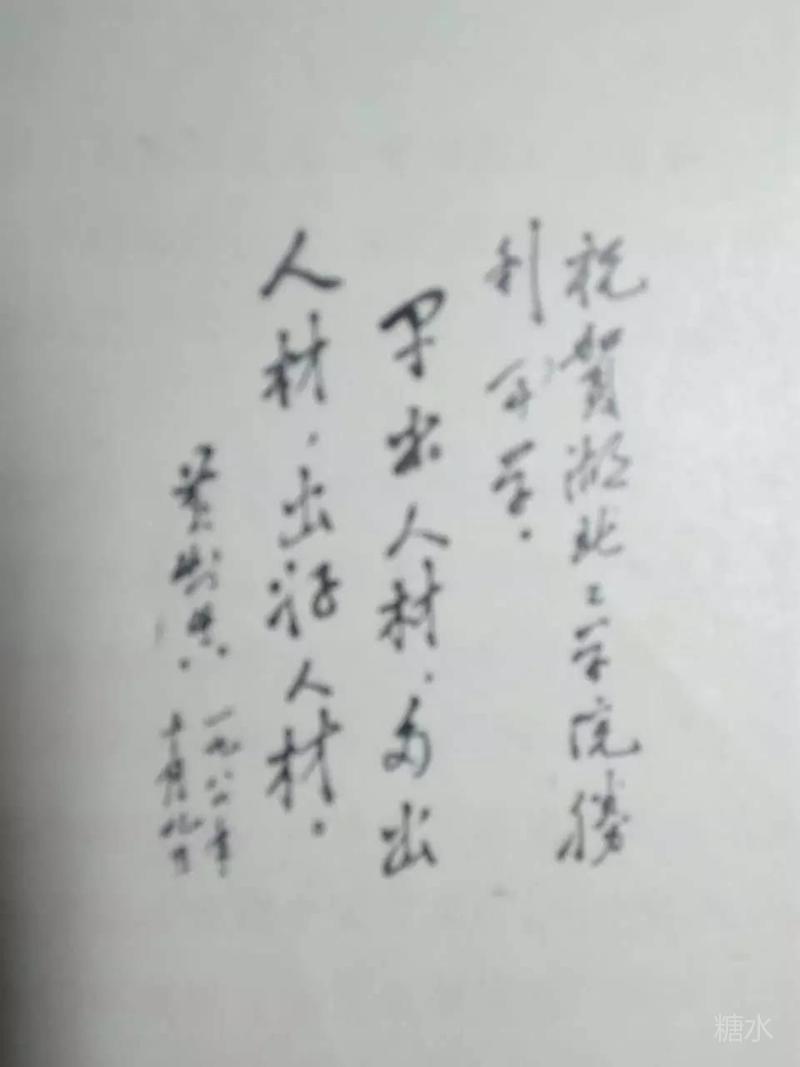 祝賀湖北工学院勝
利开学。
早出人材，多出
人材，出好人材。
一九八年
十月九日
糖水